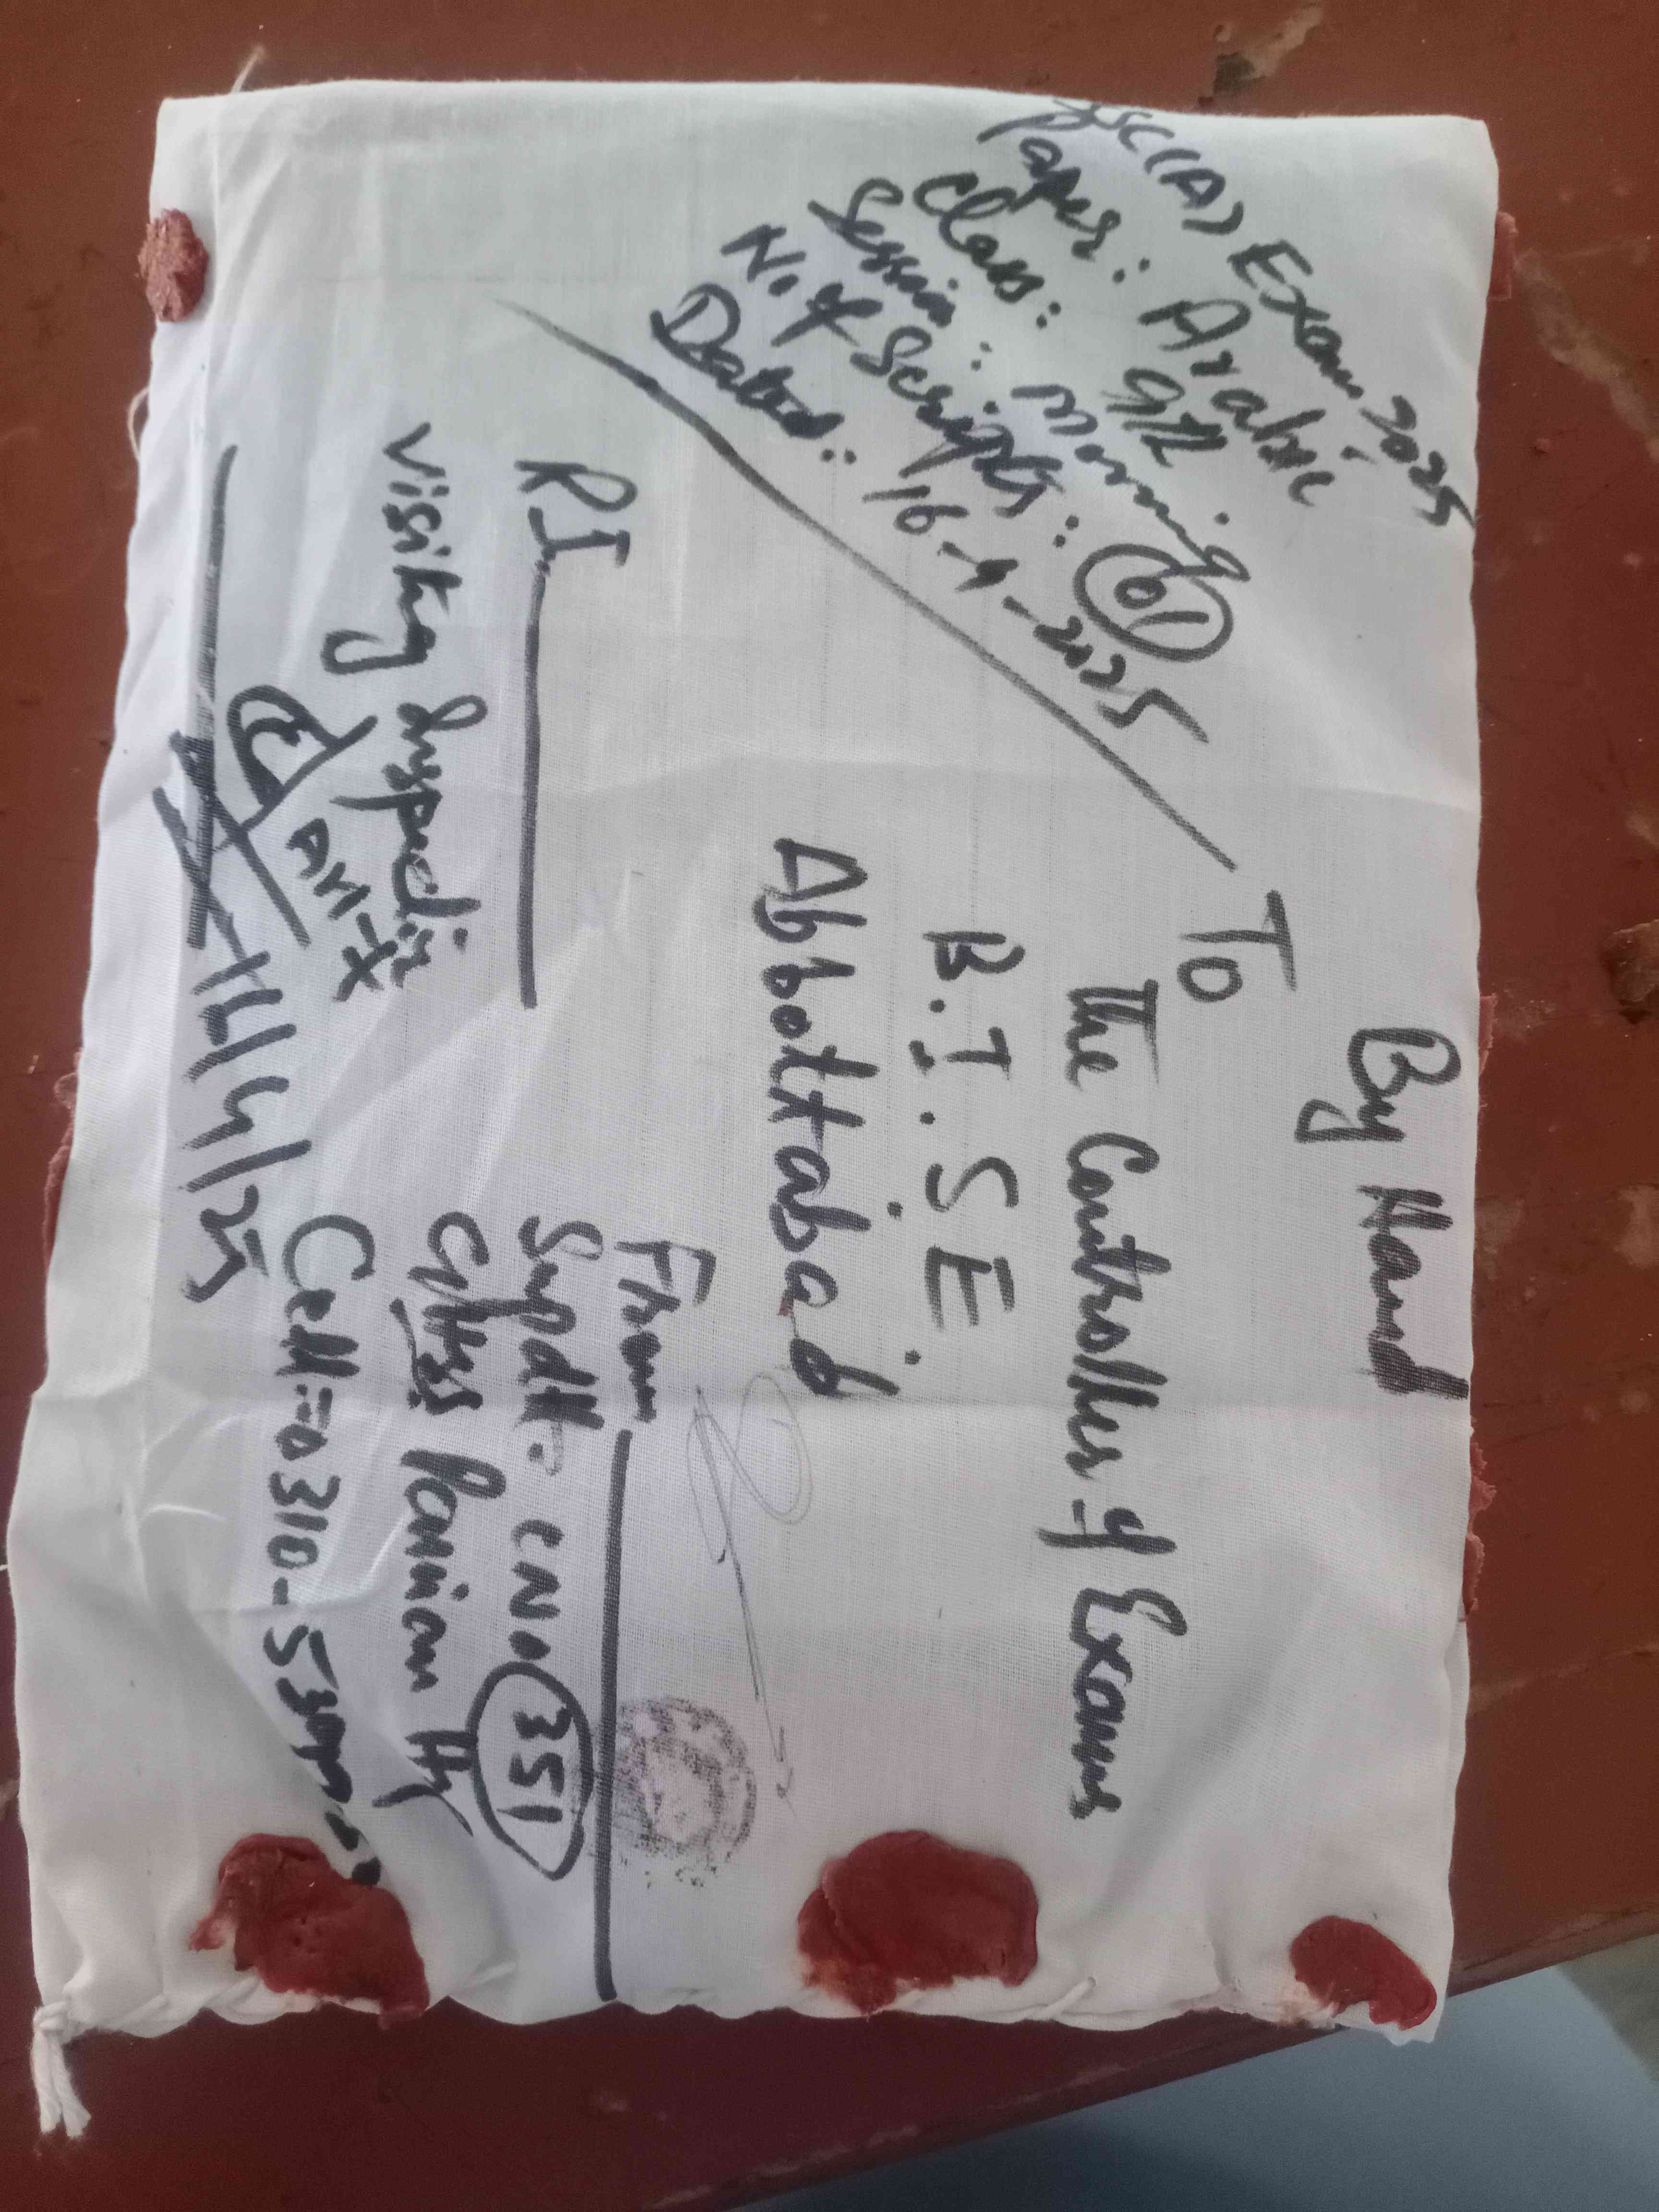 By Hand
SSC(A) Exam 2025
Paper: Arabic
Class: 9th
Session: Morning
No. of Scripts: 01
Dated: 16-4-2025
To
The Controller of Exams
B.I.S.E.
Abbottabad
From
Supdt. CNo 351
GHSS Panian H
Cell=0310-5
RI
Visiting Inspector
16/4/25